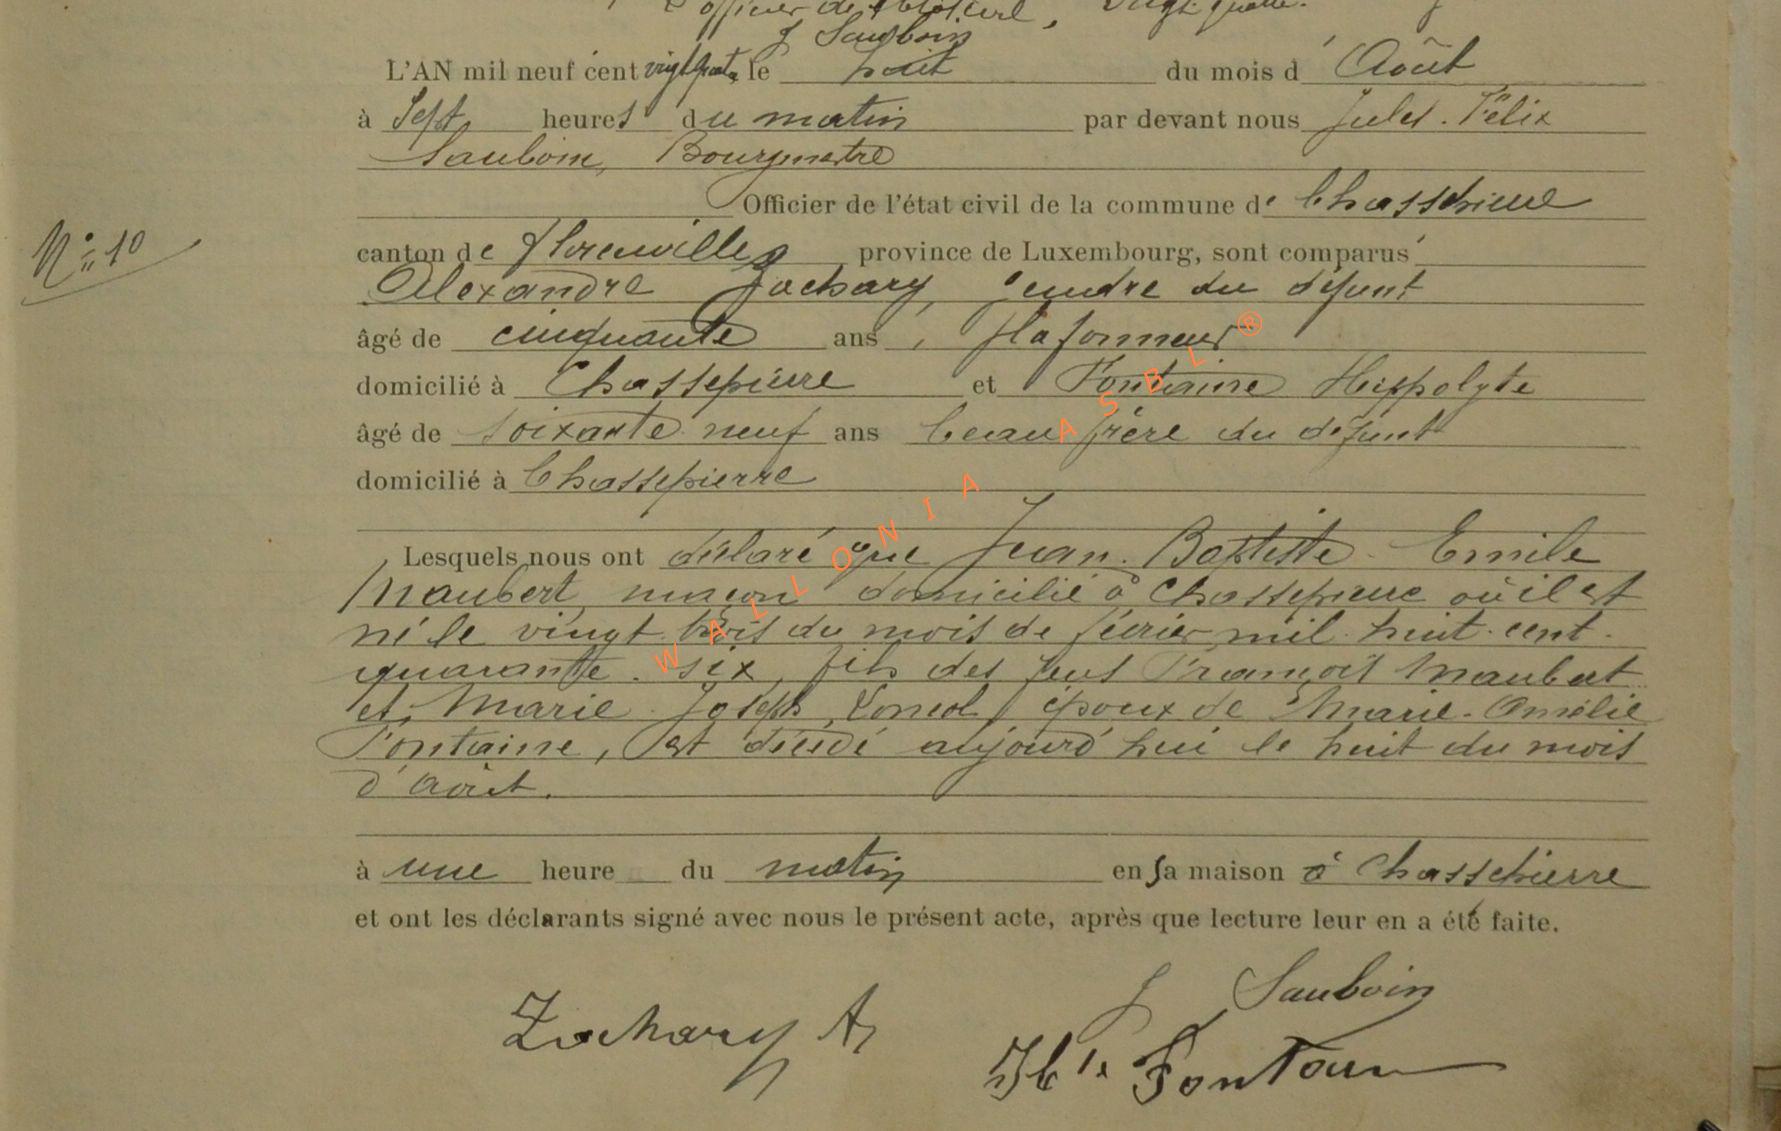 officier de l'état civil, vingt quatre.
J Sauboin
L'AN mil neuf cent vingt quatre, le huit du mois d'Août
à Sept heures du matin par devant nous Jules. Félix
Sauboin, Bourgmestre
Officier de l'état civil de la commune de Chassepierre
N° 10
canton de Florenville, province de Luxembourg, sont comparus
Alexandre Zachary, gendre du défunt
âgé de cinquante ans, plafonneur
domicilié à Chassepierre et Fontaine Hippolyte
âgé de soixante neuf ans beau frère du défunt
domicilié à Chassepierre
Lesquels nous ont déclaré que Jean. Baptiste. Emile
Maubert, maçon domicilié à Chassepierre où il est
né le vingt trois du mois de février mil. huit. cent.
quarante. six, fils des feus François Maubert
et Marie. Joseph, époux de Marie. Amélie
Fontaine, est décédé aujourd'hui le huit du mois
d'août.
à une heure du matin en sa maison à Chassepierre
et ont les déclarants signé avec nous le présent acte, après que lecture leur en a été faite.
J Sauboin
Zachary A
Hte Fontaine
WALLONIA ASBL®